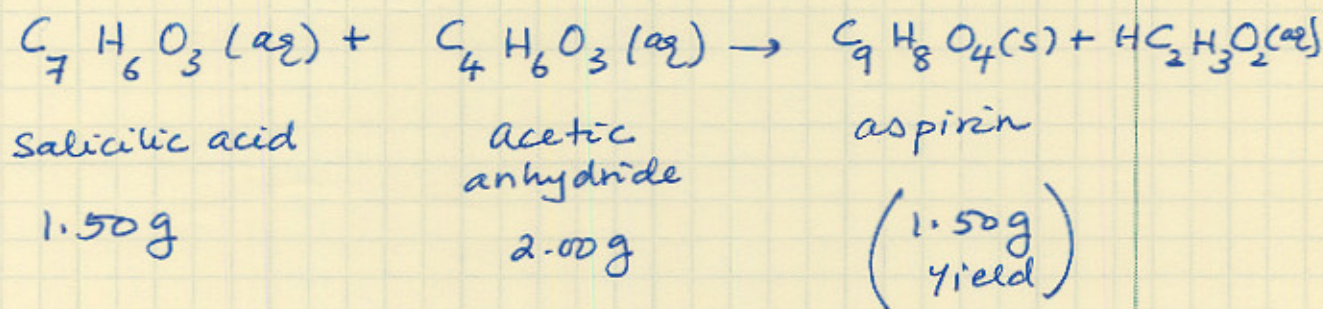 C₇H₆O₃(aq) + C₄H₆O₃(aq) → C₉H₈O₄(s) + HC₂H₃O₂(aq)
salicilic acid acetic anhydride aspirin
1.50g 2.00g (1.50g yield)